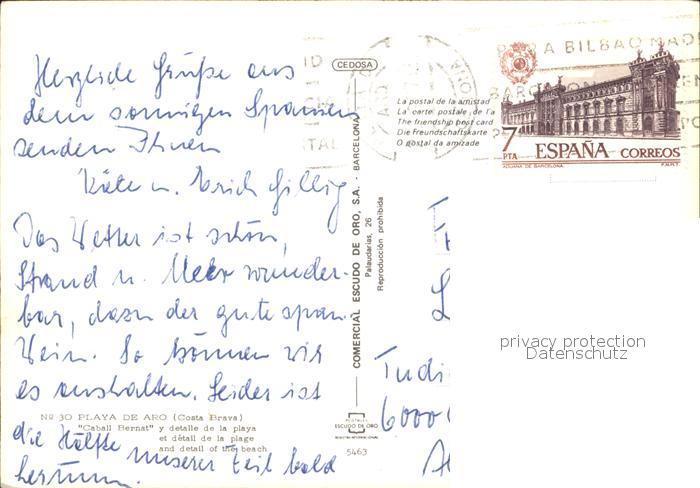 Herzliche Grüße aus
dem sonnigen Spanien
senden Ihnen
Käte u. Erich Gillig
Das Wetter ist schön,
Strand u. Meer wunder-
bar, dazu der gute span.
Wein. So können wir
es aushalten. Leider ist
die Hälfte unserer Zeit bald
herum.
Nº 30 PLAYA DE ARO (Costa Brava)
"Caball Bernat" y detalle de la playa
et détail de la plage
and detail of the beach
CEDOSA
COMERCIAL ESCUDO DE ORO, S.A. - BARCELONA
Palaudarias, 26
Reproducción prohibida
POSTALES
ESCUDO DE ORO
5463
La postal de la amistad
La carte postale de l'a
The friendship post card
Die Freundschaftskarte
O postal da amizade
BILBAO MAD
BARC
7
PTA
ESPAÑA CORREOS
ADUANA DE BARCELONA
F.N.M.T.
Indi
6000
privacy protection
Datenschutz